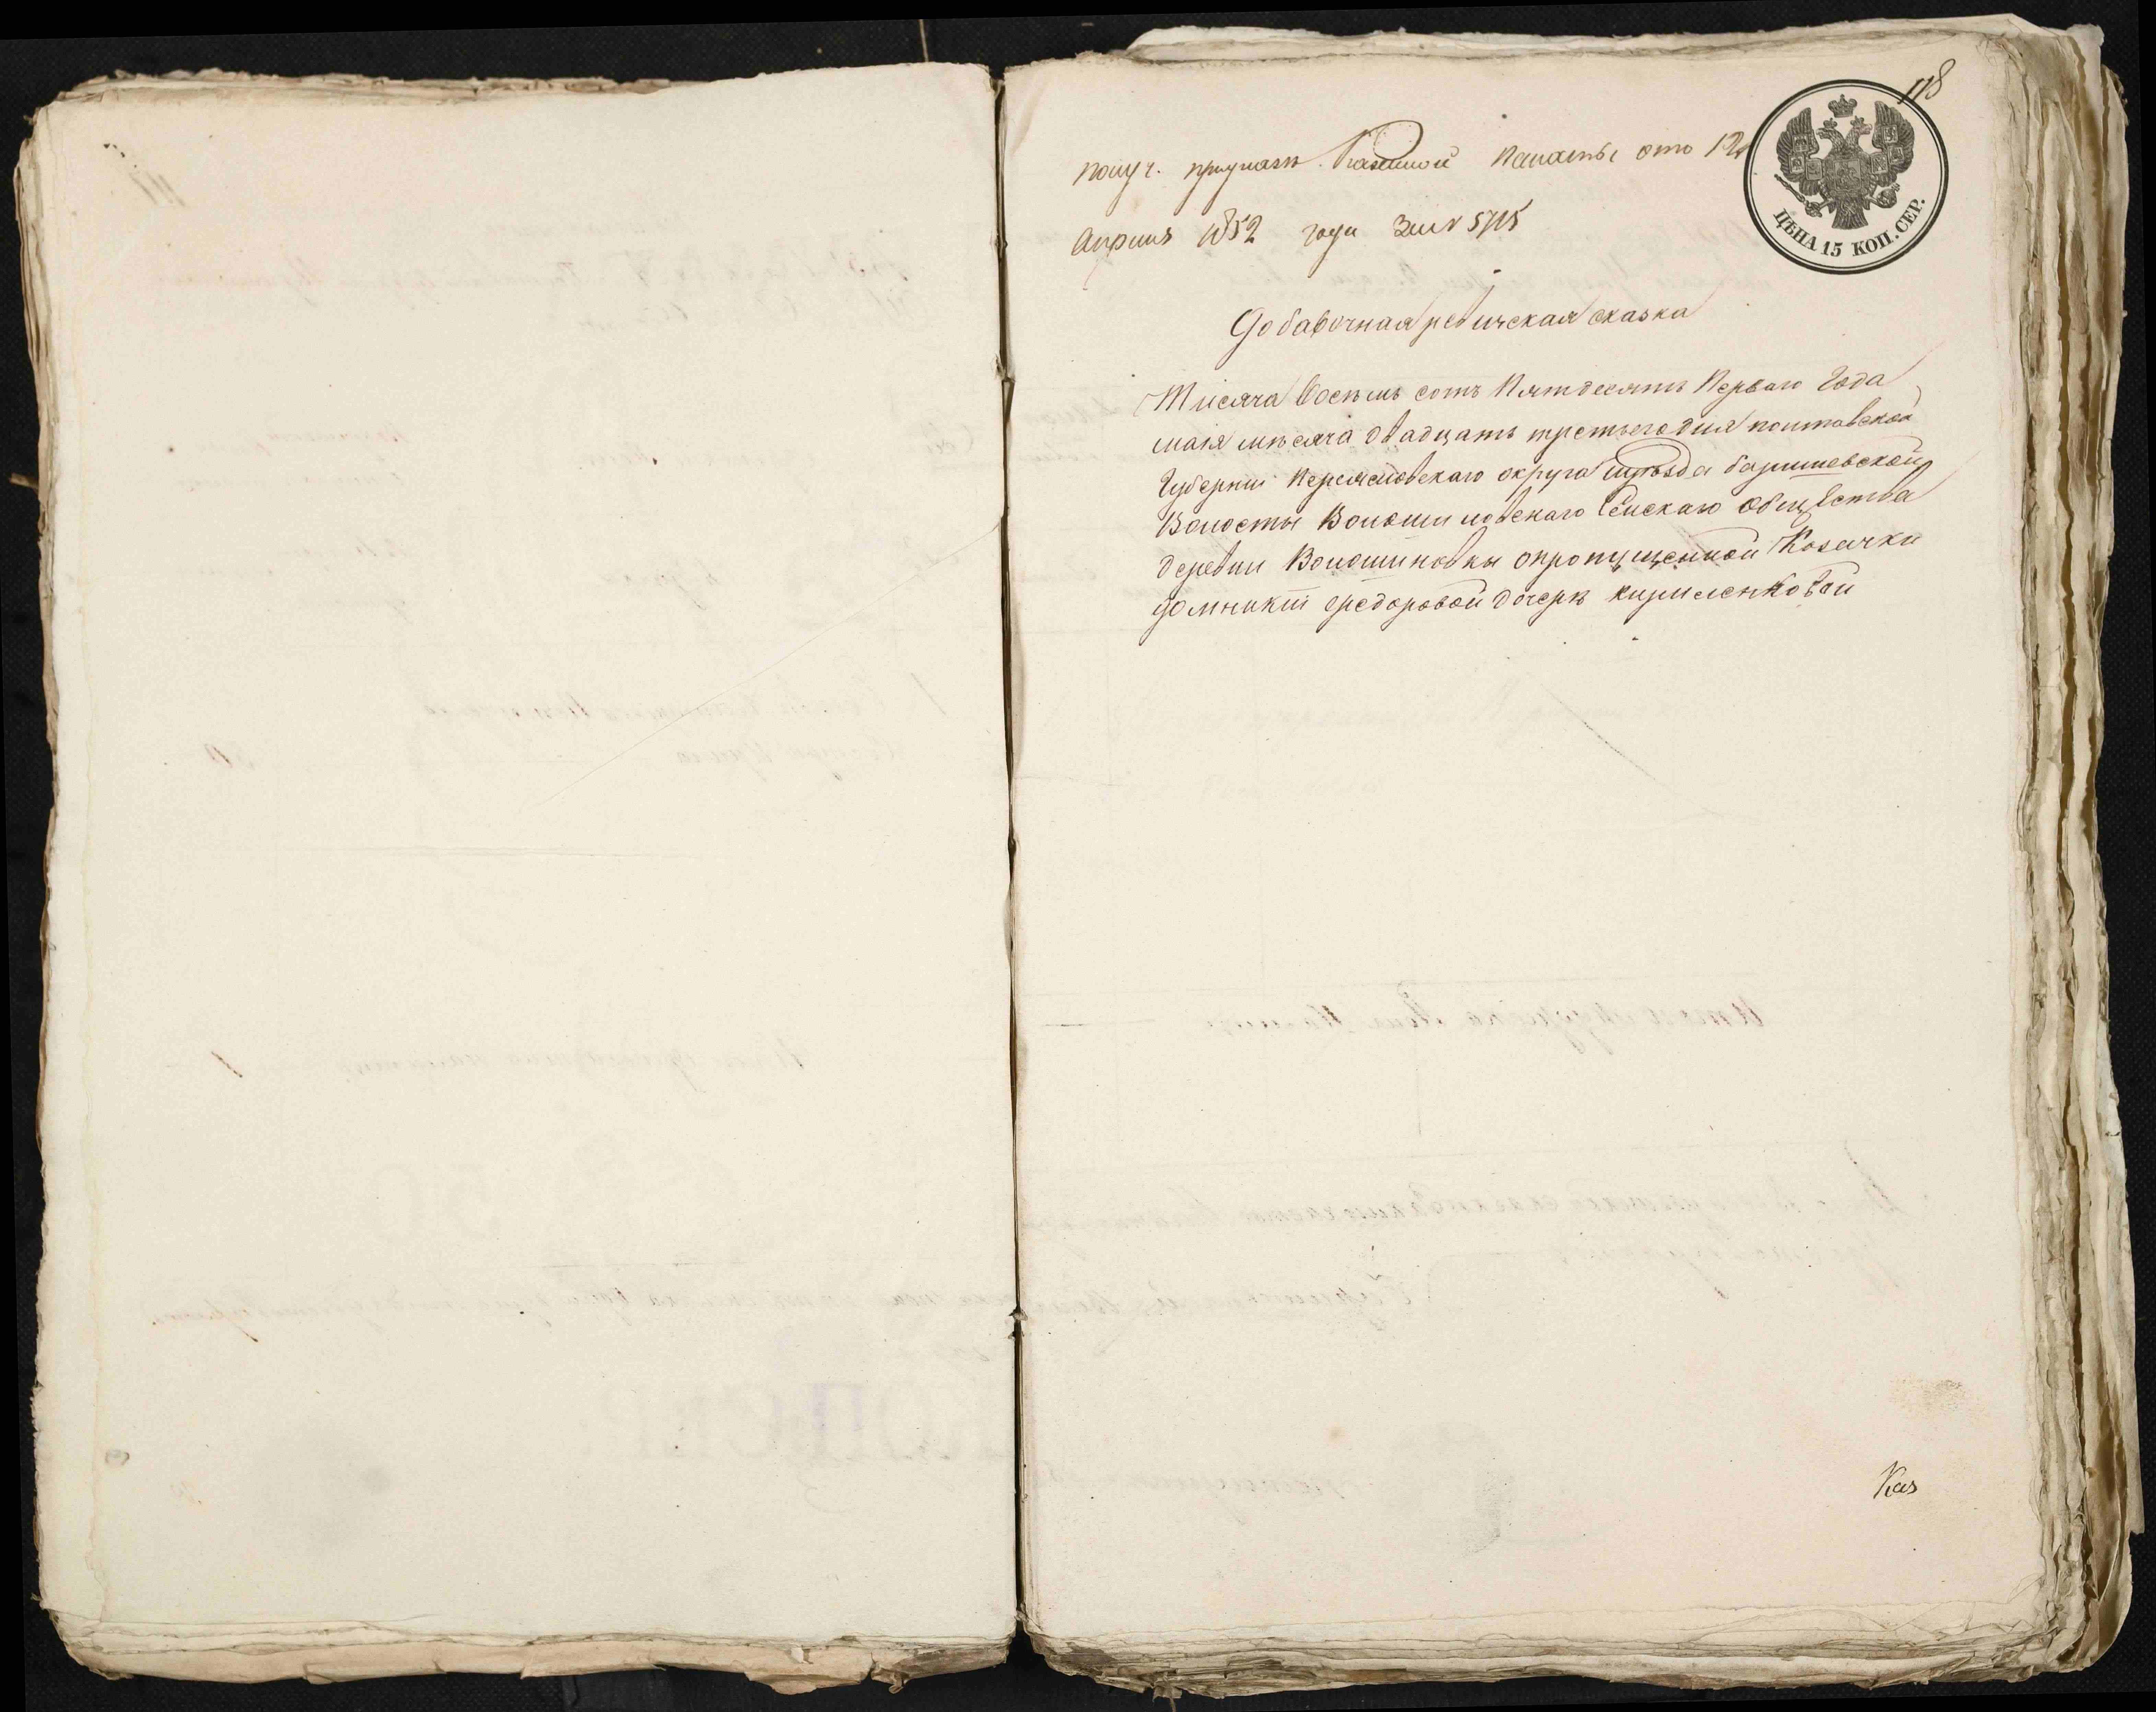 118
получ. при указе Казенной Палаты отъ 12
Апреля 1852 года за № 5715
ЦѢНА 15 КОП. СЕР.
Добавочная ревизская сказка
Тисяча Восемь сотъ Пятдесятъ Перваго Года
маія мѣсяча двадцать третьего дня полтавской
Губерніи Переясловскаго округа иуѣзда баришевской
Волосты Волошиновскаго Селскаго Общества
деревни Волошиновки опропущенной Козачки
домникіи федоровой дочерѣ кириленковой
Каз